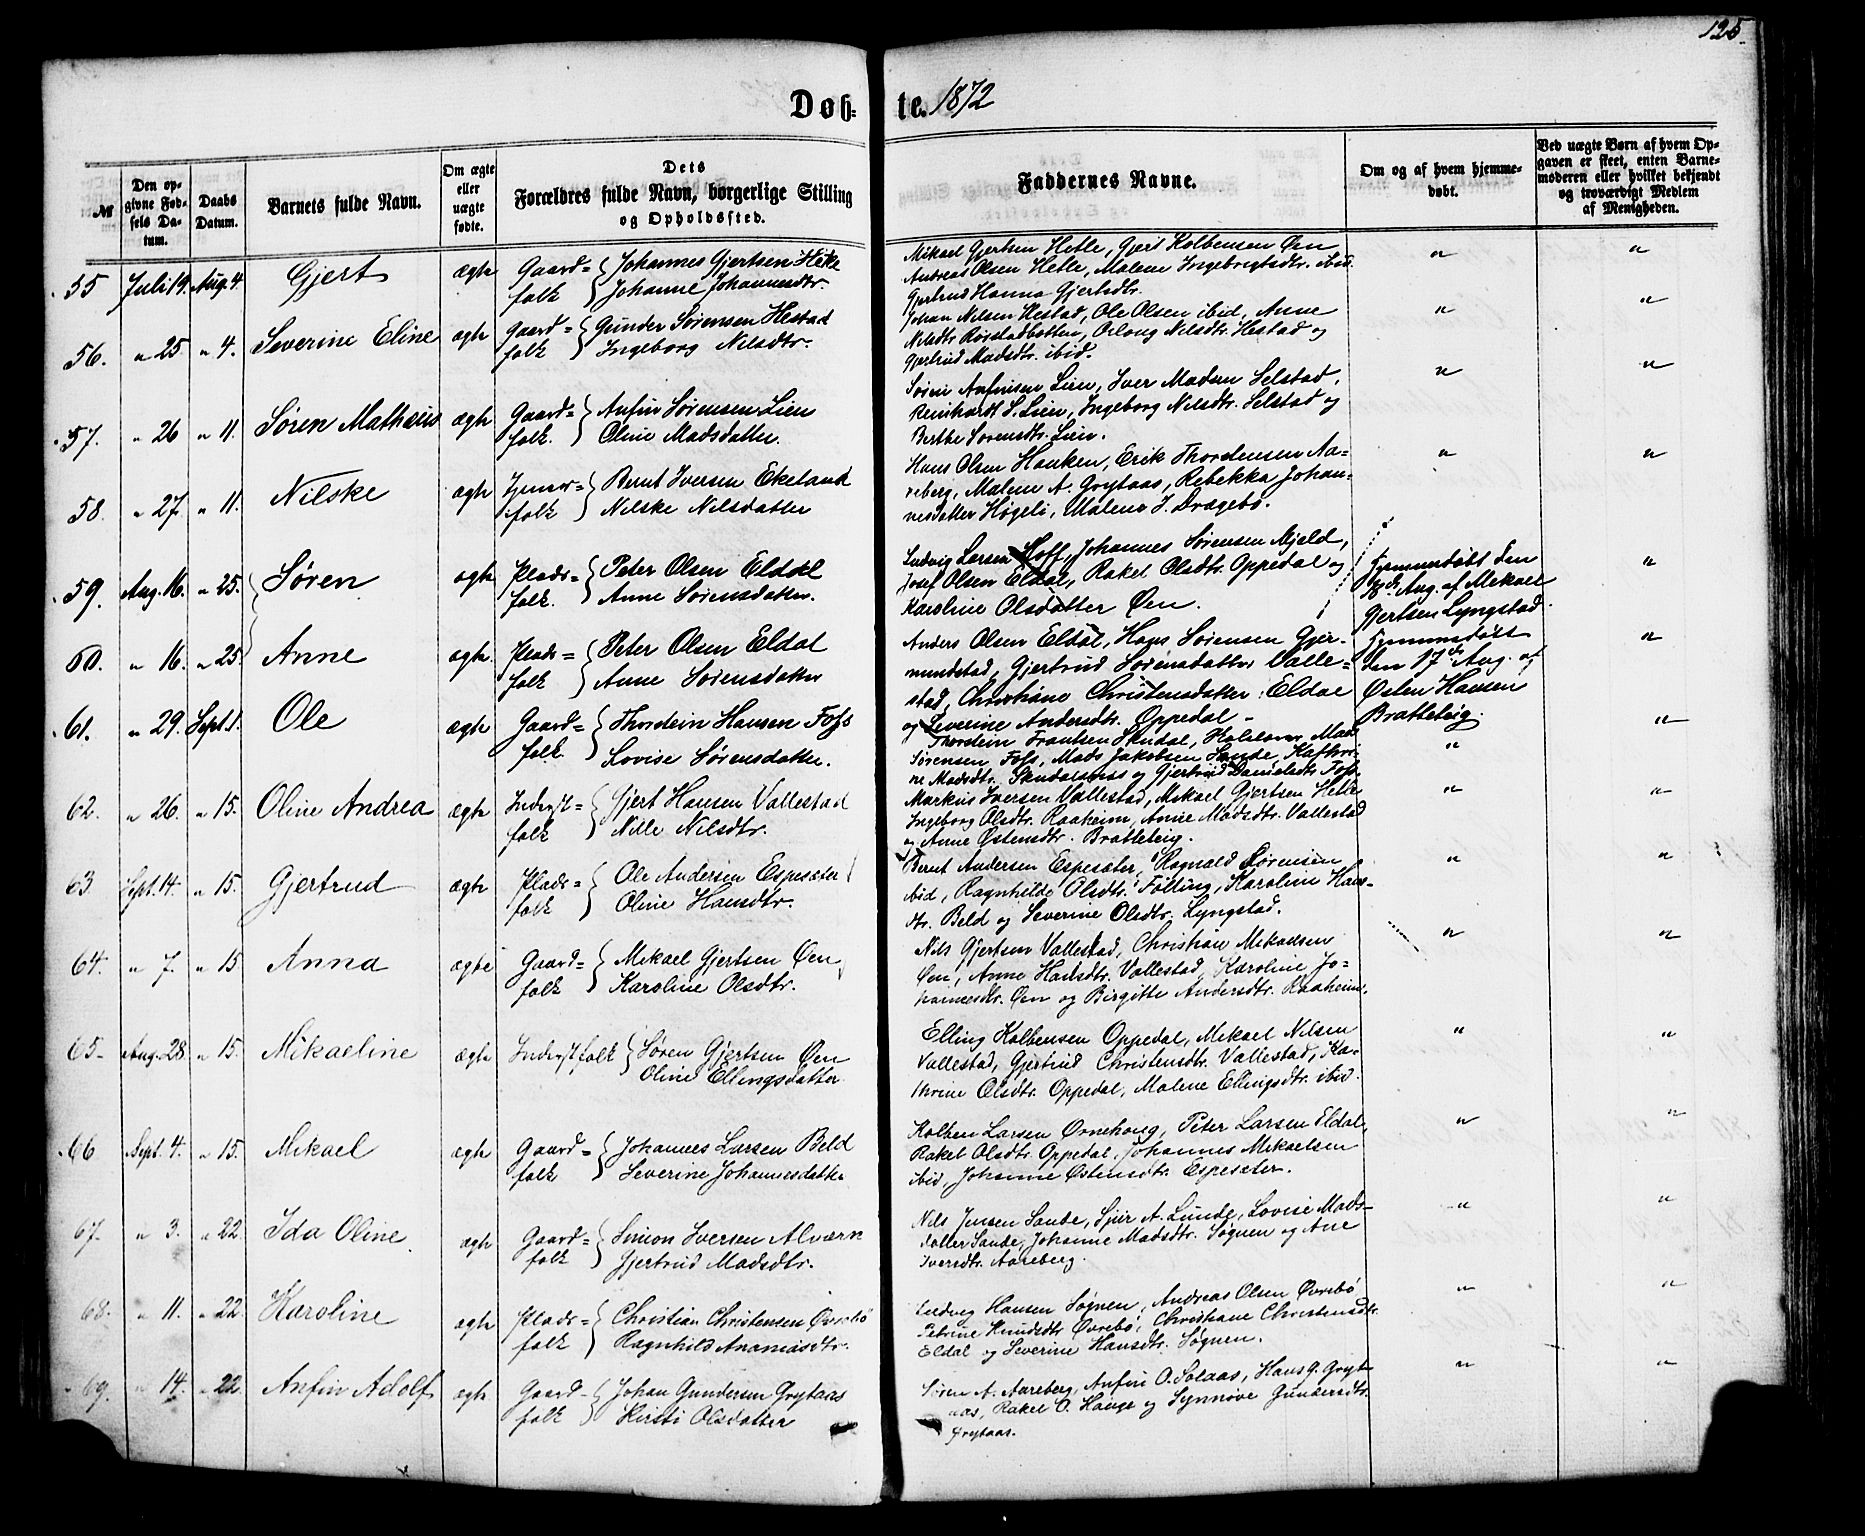 125.
Døb- te. 1872
№
Den opgivne Fødsels Datum.
Daabs Datum.
Barnets fulde Navn.
Om ægte eller uægte fødte.
Dets Forældres fulde Navn, borgerlige Stilling og Opholdssted.
Faddernes Navne.
Om og af hvem hjemmedøbt.
Ved uægte Børn af hvem Opgaven er skeet, enten Barnemoderen eller hvilket bekjendt og troværdigt Medlem af Menigheden.
55 Juli 19. Aug. 4. Gjert ægte Gaard= Johannes Gjertsen Hetle
folk Johanne Johannesdtr.
Mikael Gjertsen Hetle, Gjert Kolbensen Øen
Andreas Olsen Hetle, Malene Ingebrigtsdtr. ibid.
Gjertrud Hanna Gjertsdtr.
" "
56. " 25 " 4. Severine Eline ægte Gaard= Gunder Sørensen Hestad
folk Ingeborg Nilsdtr.
Johan Nilsen Hestad, Ole Olsen ibid, Anne
Nilsdtr. Rørstadbotten, Oslong Nilsdtr. Hestad og
Gjertrud Madsdtr. ibid.
" "
57. " 26 " 11. Søren Mathæus ægte Gaard= Anfin Sørensen Lien
folk. Oline Madsdatter.
Søren Anfinsen Lien, Iver Madsen Selstad,
Reinhardt S. Lien, Ingeborg Nilsdtr. Selstad og
Berthe Sørensdtr. Lien.
" "
58. " 27 " 11. Nilske ægte Bernt Iversen Ekeland
folk Nilske Nilsdatter
Hans Olsen Hauken, Erik Thordensen Aa-
reberg, Malene A. Grytaas, Rebekka Johan-
nesdatter Høgeli, Malene J. Dragebø.
" "
59. Aug. 16. " 25. Søren ægte Plads= Peter Olsen Eldal
folk. Anne Sørensdatter.
Ludvig Larsen Hoff, Johannes Sørensen Mjeld,
Josef Olsen Eldal, Rakel Olsdtr. Oppedal og
Karoline Olsdatter Øen.
Hjemmedøbt den
18de Aug. af Mekael
Gjertsen Lyngstad.
"
60. " 16. " 25. Anne ægte. Plads= Peter Olsen Eldal
folk Anne Sørensdatter
Anders Olsen Eldal, Hans Sørensen Gjer-
mundstad, Gjertrud Sørensdatter Valle-
stad, Christiane Christensdatter Eldal
og Severine Andersdtr. Oppedal
Hjemmedøbt
den 17de Aug. af
Østen Hansen
Bratteteig.
"
61. " 29. Sept. 1. Ole ægte Gaard= Thordein Hansen Foss
folk Lovise Sørensdatter.
Thordein Frantsen Skudal, Mads
Sørensen Foss, Mads Jakobsen Sande, Kathri-
ne Madsdtr. Skudalsnæss og Gjertrud Danielsdtr. Foss.
" "
62. " 26. " 15. Oline Andrea ægte Inderst= Gjert Hansen Vallestad
folk Nille Nilsdtr.
Markus Iversen Vallestad, Mekael Gjertsen Hetle
Ingeborg Olsdtr. Raaheim, Anne Madsdtr. Vallestad
og Anne Østensdtr. Bratteteig.
" "
63 Sept. 14. " 15. Gjertrud ægte Plads= Ole Andersen Espesæter
folk Oline Hansdtr.
Bernt Andersen Espesæter, Ragnald Sørensen
ibid, Ragnhilde Olsdtr. Følling, Karoline Hans-
dtr. Beld og Severine Olsdtr. Lyngstad.
" "
64. " 7. " 15 Anna ægte Gaard= Mekael Gjertsen Øen,
folk Karoline Olsdtr.
Nils Gjertsen Vallestad, Christian Mekaelsen
Øen, Anne Hansdtr. Vallestad, Karoline Jo-
hannesdtr. Øen og Birgitte Andersdtr. Raaheim.
" "
65- Aug. 28 " 15. Mikaeline ægte Inderstfolk Søren Gjertsen Øen
Oline Ellingsdatter
Elling Kolbensen Oppedal, Mekael Nilsen
Vallestad, Gjertrud Christensdtr. Vallestad, Ka-
thrine Olsdtr. Oppedal, Malene Ellingsdtr. ibid.
" "
66 Sept. 4. " 15. Mikael ægte Gaard= Johannes Larsen Beld
folk Severine Johannesdatter
Kolben Larsen Ørnehoug, Peter Larsen Eldal,
Rakel Olsdtr. Oppedal, Johannes Mekaelsen
ibid, Johanne Østensdtr. Espesæter.
" "
67. " 3. " 22. Ida Oline ægte Gaard= Simon Iversen Alværn
folk Gjertrud Madsdtr.
Nils Jensen Sande, Sjur A. Lunde, Lovise Mads-
datter Sande, Johanne Madsdtr. Søgnen og Ane
Iversdtr. Aareberg.
" "
68. " 11. " 22. Karoline ægte Plads= Christian Christensen Øvrebø
folk Ragnhild Ananiasdtr.
Ludvig Hansen Søgnen, Andreas Olsen Øvrebø
Petrine Knudsdtr. Øvrebø, Christiane Christensdtr.
Eldal og Severine Hansdtr. Søgnen.
" "
69. " 14. " 22 Anfin Adolf ægte Gaard= Johan Gundersen Grytaas
folk Kirsti Olsdatter
Søren A. Aareberg, Anfin O. Solaas, Hans G. Gryt-
aas, Rakel O. Hauge og Synnøve Gundersdtr.
Grytaas.
" "